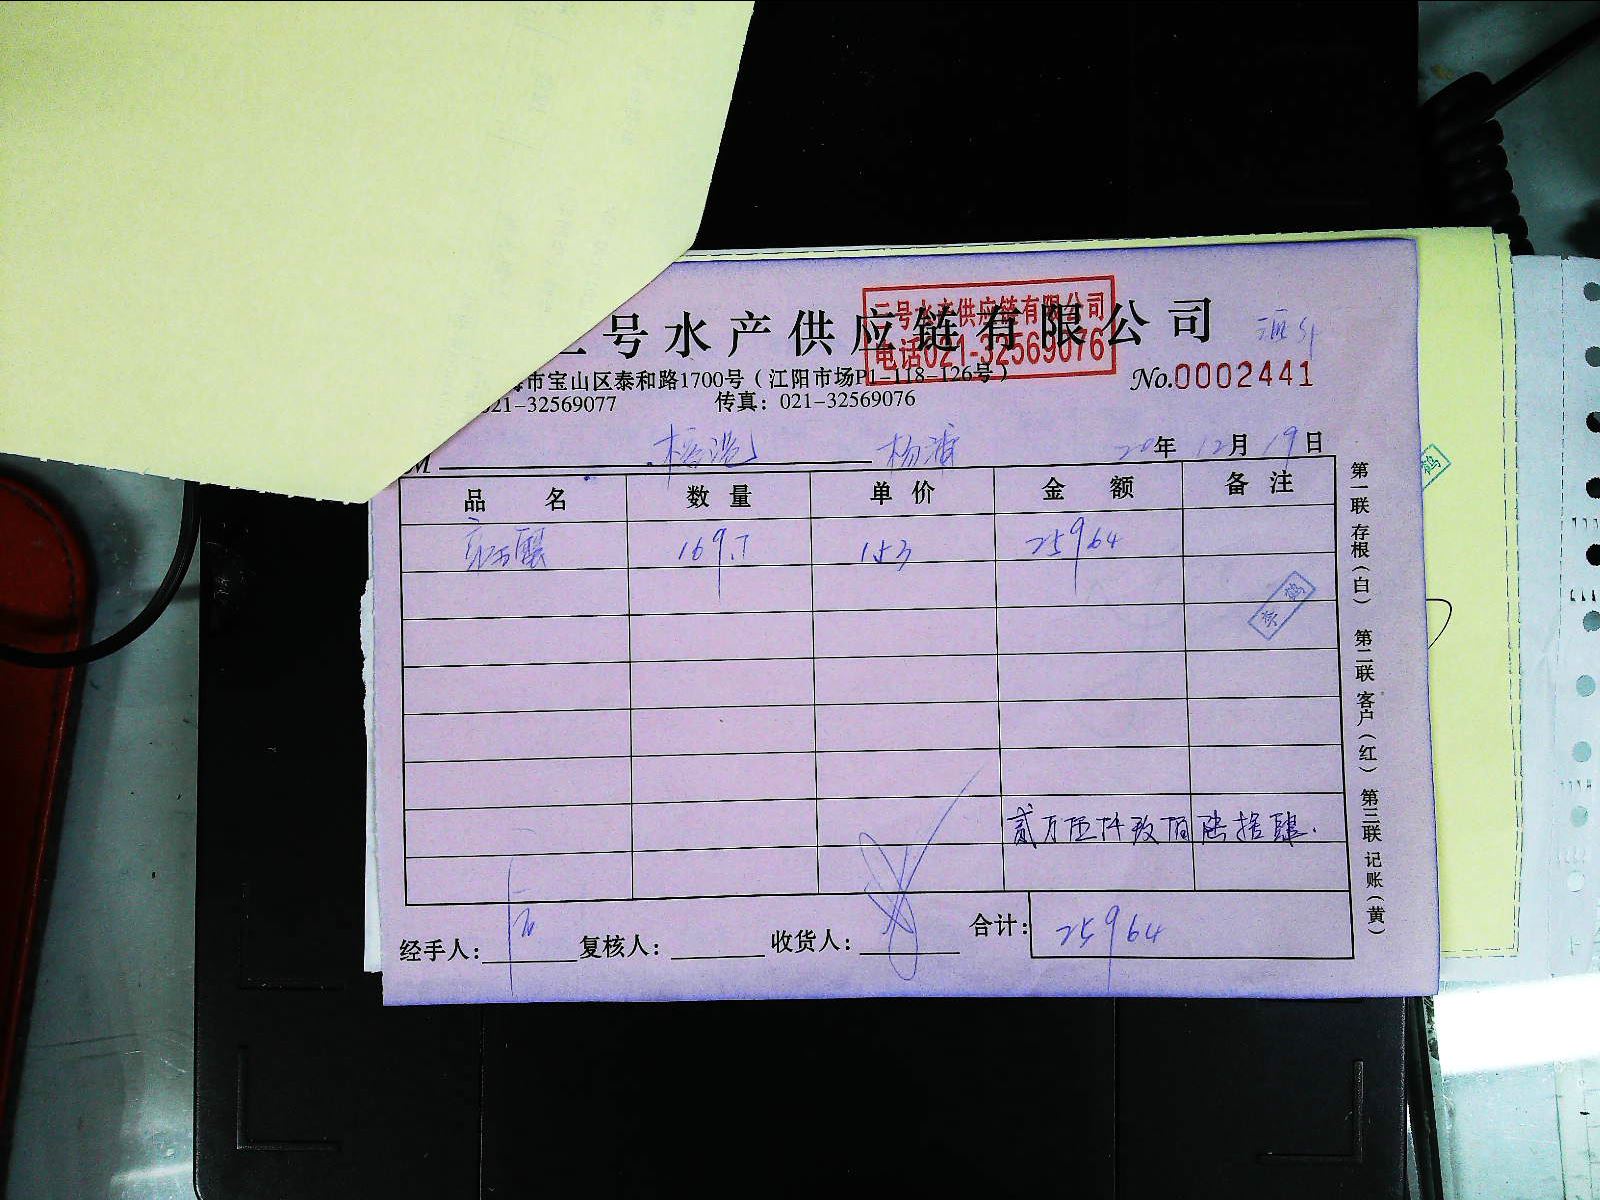 三号水产供应链有限公司
三号水产供应链有限公司
电话021-32569076
海市宝山区泰和路1700号（江阳市场P1-118-126号）
No.0002441
021-32569077 传真：021-32569076
M 杨浦 20年12月19日
品名 数量 单价 金额 备注
169.7 153 25964
贰万伍仟玖佰陆拾肆.
经手人： 复核人： 收货人： 合计：25964
第一联 存根（白） 第二联 客户（红） 第三联 记账（黄）